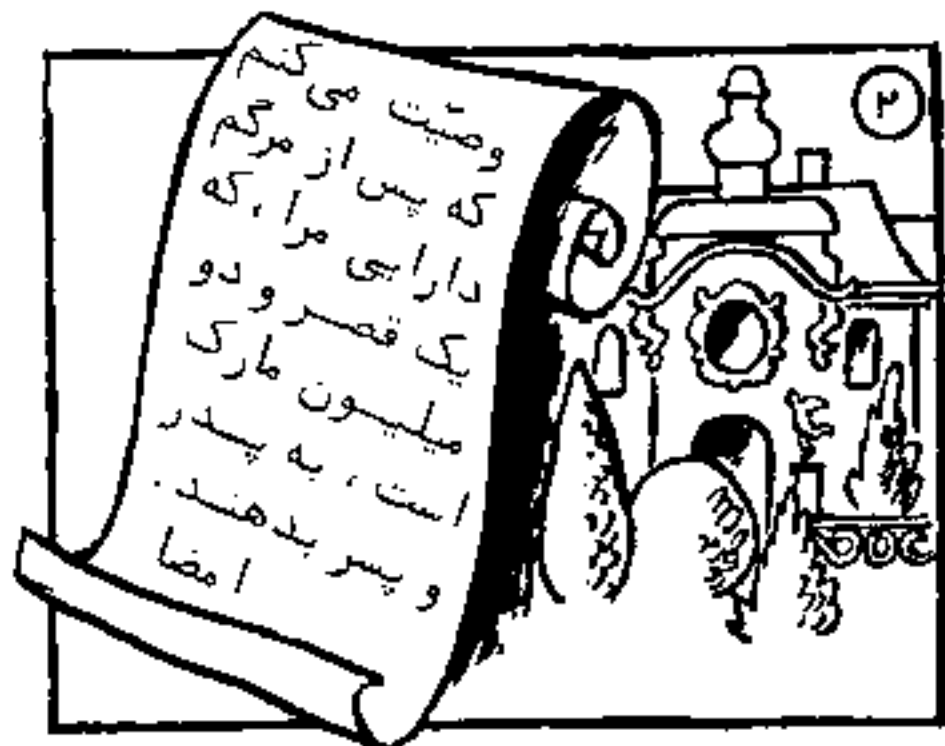 ۲
وصیّت می کنم
که پس از مرگم
دارایی مرا ، که
یک قصر و دو
میلیون مارک
است ، به پدر
و پسر بدهند .
امضا